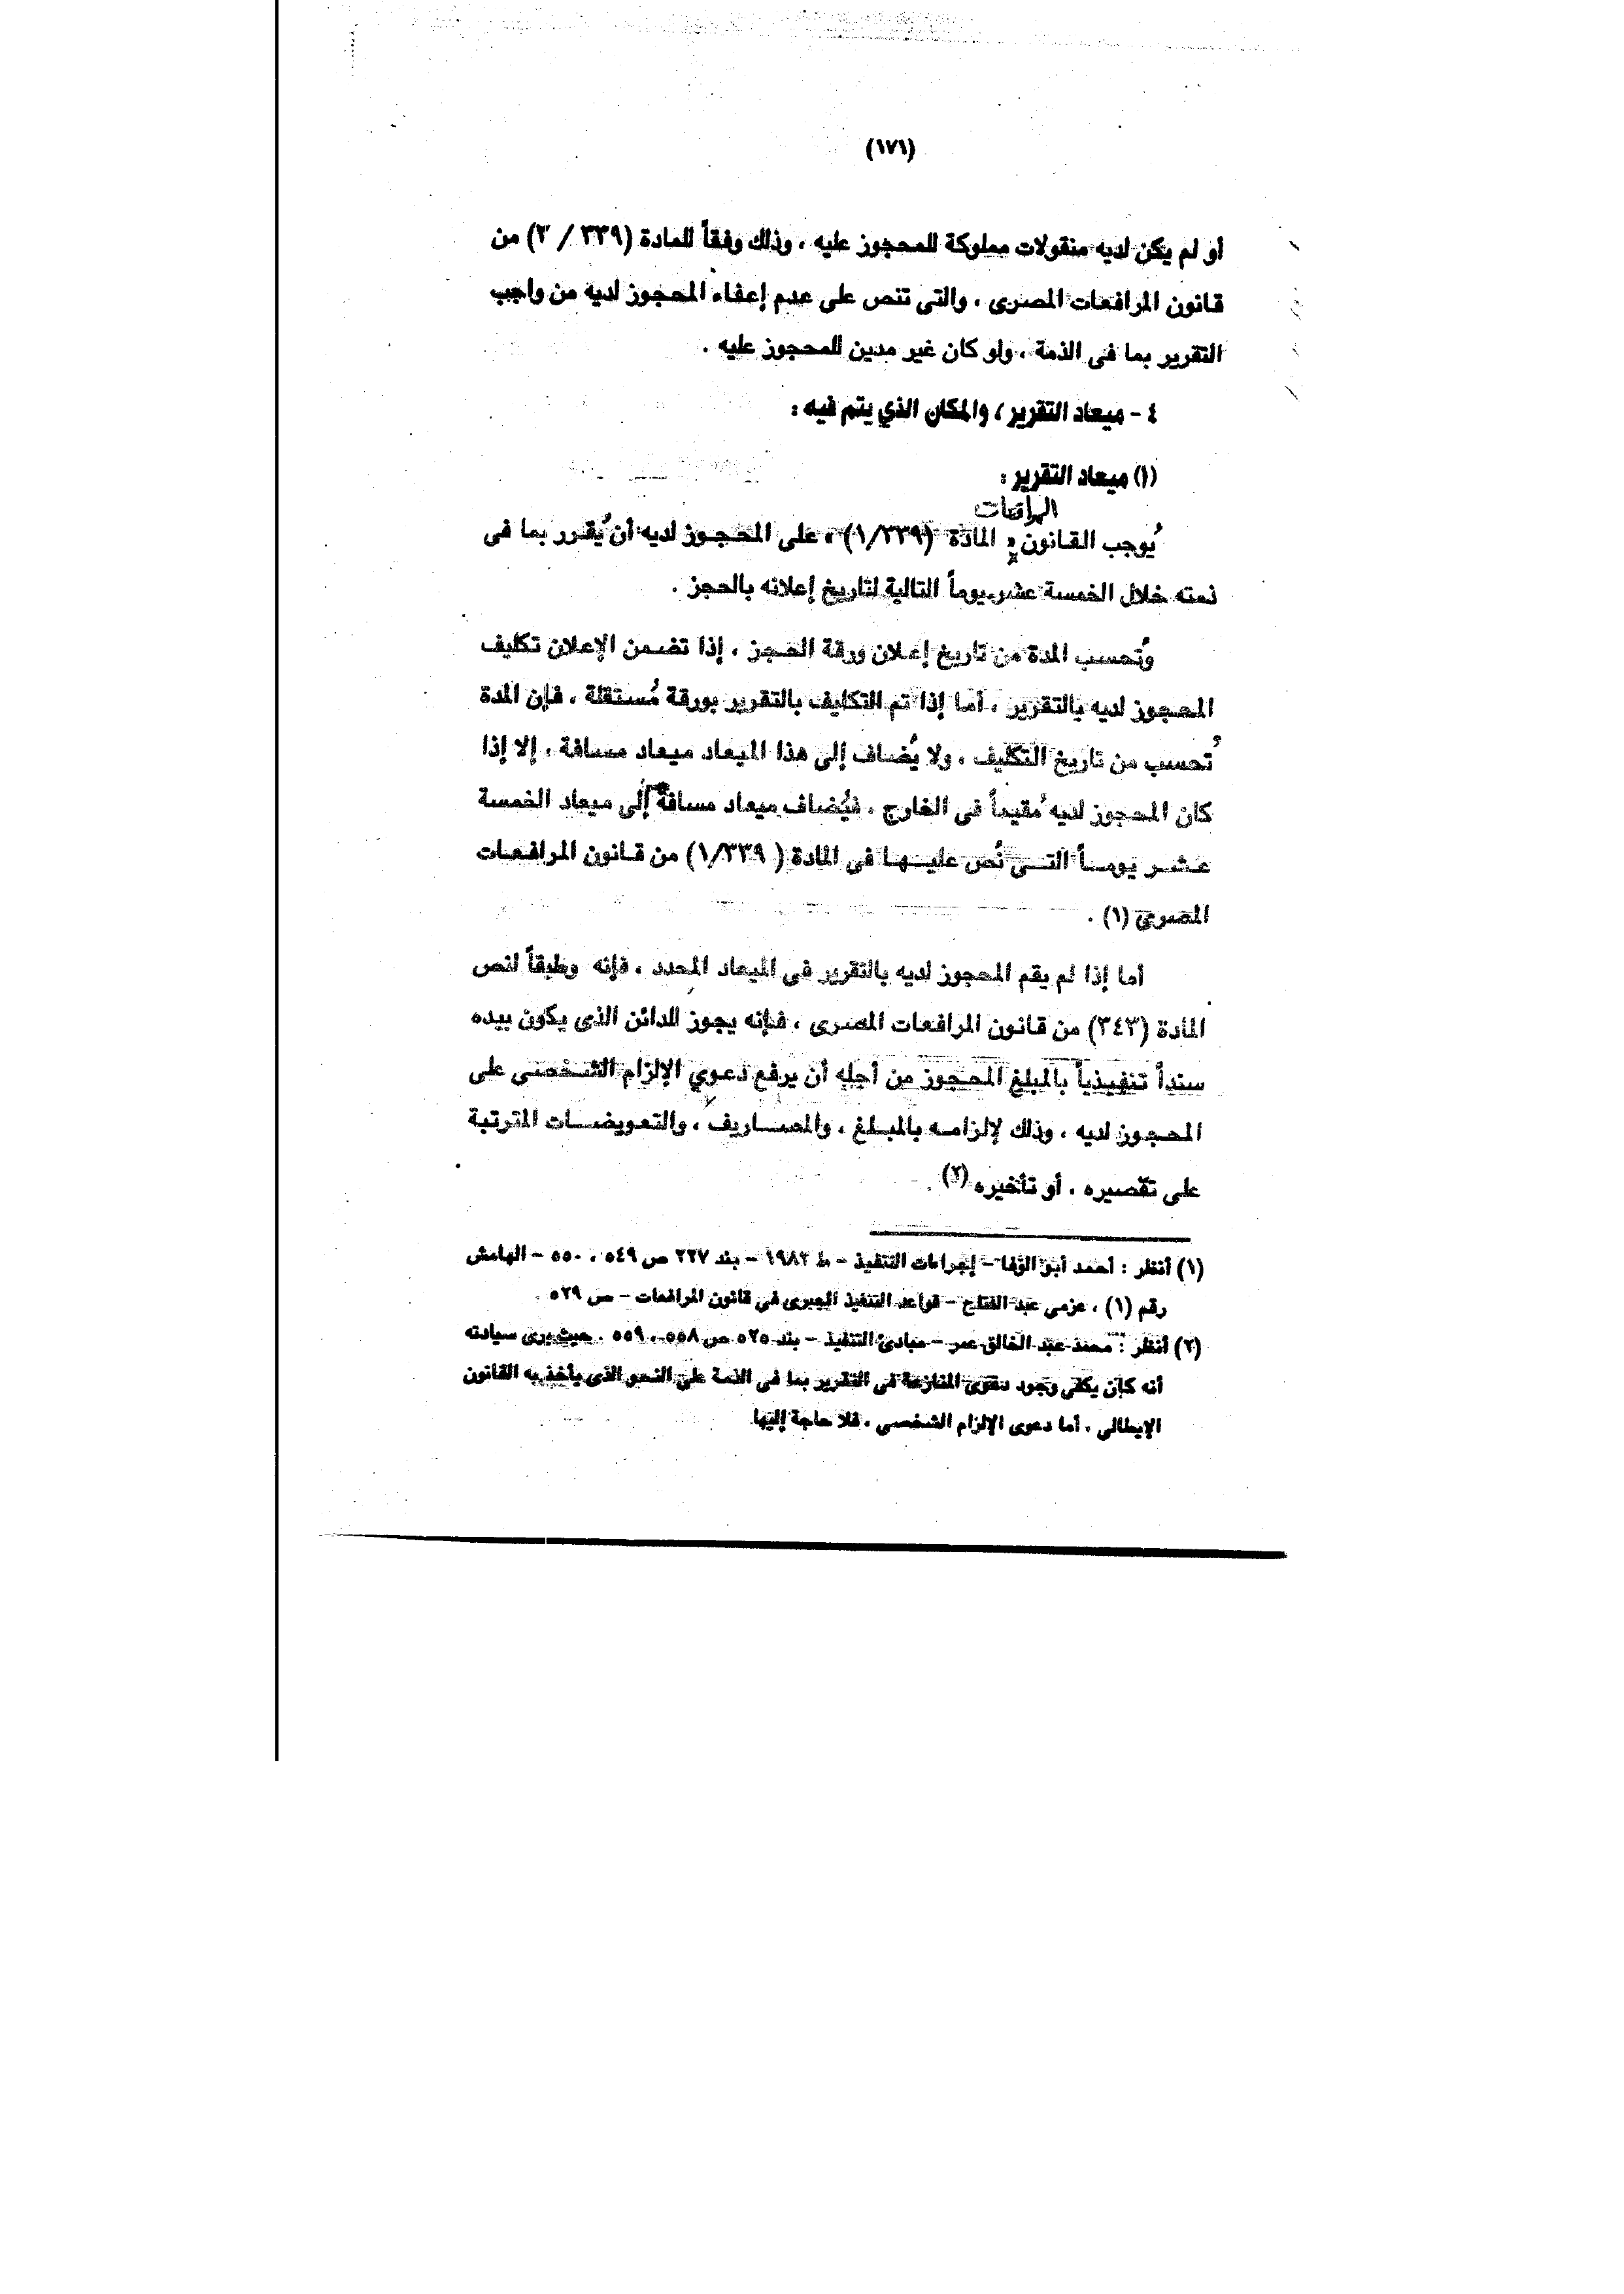 (١٧١)
أو لم يكن لديه منقولات مملوكة للمحجوز عليه ، وذلك وفقاً للمادة (٣٣٩ / ٣) من
قانون المرافعات المصرى ، والتى تنص على عدم إعفاء المحجوز لديه من واجب
التقرير بما فى الذمة ، ولو كان غير مدين للمحجوز عليه .
٤ - ميعاد التقرير ، والمكان الذي يتم فيه :
(أ) ميعاد التقرير :
المرافعات
يُوجب القانون المادة (١/٣٣٩) ، على المحجوز لديه أن يُقرر بما فى
ذمته خلال الخمسة عشر يوماً التالية لتاريخ إعلانه بالحجز .
وتُحسب المدة من تاريخ إعلان ورقة الحجز ، إذا تضمن الإعلان تكليف
المحجوز لديه بالتقرير ، أما إذا تم التكليف بالتقرير بورقة مُستقلة ، فإن المدة
تُحسب من تاريخ التكليف ، ولا يُضاف إلى هذا الميعاد ميعاد مسافة ، إلا إذا
كان المحجوز لديه مُقيماً فى الخارج ، فيُضاف ميعاد مسافة إلى ميعاد الخمسة
عشر يوماً التى نُص عليها فى المادة ( ١/٣٣٩) من قانون المرافعات
المصرى (١) .
أما إذا لم يقم المحجوز لديه بالتقرير فى الميعاد المحدد ، فإنه وطبقاً لنص
المادة (٣٤٣) من قانون المرافعات المصرى ، فإنه يجوز للدائن الذى يكون بيده
سنداً تنفيذياً بالمبلغ المحجوز من أجله أن يرفع دعوي الإلزام الشخصى على
المحجوز لديه ، وذلك لإلزامه بالمبلغ ، والمصاريف ، والتعويضات المترتبة
على تقصيره ، أو تأخيره (٢) .
(١) أنظر : أحمد أبو الوفا - إجراءات التنفيذ - ط ١٩٨٢ - بند ٢٢٧ ص ٥٤٩ ، ٥٥٠ - الهامش
رقم (١) ، عزمى عبد الفتاح - قواعد التنفيذ الجبرى فى قانون المرافعات - ص ٥٢٩ .
(٢) أنظر : محمد عبد الخالق عمر - مبادئ التنفيذ - بند ٥٢٥ ص ٥٥٨ ، ٥٥٩ . حيث يرى سيادته
أنه كان يكفى وجود دعوى المنازعة فى التقرير بما فى الذمة على النحو الذى يأخذ به القانون
الإيطالى ، أما دعوى الإلزام الشخصى ، فلا حاجة إليها